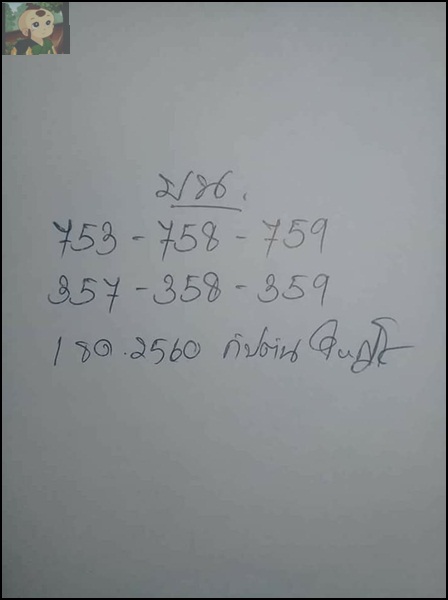 บน.
753 - 758 - 759
357 - 358 - 359
1 80.2560 กัปตัน